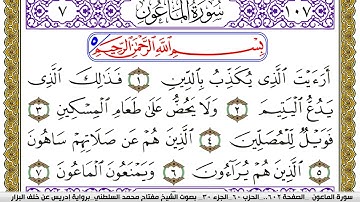 ٧ سُورَةُ المَاعُون ١٠٧
بِسْمِ اللَّهِ الرَّحْمَٰنِ الرَّحِيمِ
أَرَءَيْتَ الَّذِى يُكَذِّبُ بِالدِّينِ ١ فَذَٰلِكَ الَّذِى
يَدُعُّ الْيَتِيمَ ٢ وَلَا يَحُضُّ عَلَىٰ طَعَامِ الْمِسْكِينِ ٣
فَوَيْلٌ لِّلْمُصَلِّينَ ٤ الَّذِينَ هُمْ عَن صَلَاتِهِمْ سَاهُونَ
٥ الَّذِينَ هُمْ يُرَآءُونَ ٦ وَيَمْنَعُونَ الْمَاعُونَ ٧
سورة الماعون الصفحة ٦٠٢.. الحزب ٦٠ الجزء ٣٠ بصوت الشيخ مفتاح محمد السلطني برواية إدريس عن خلف البزار